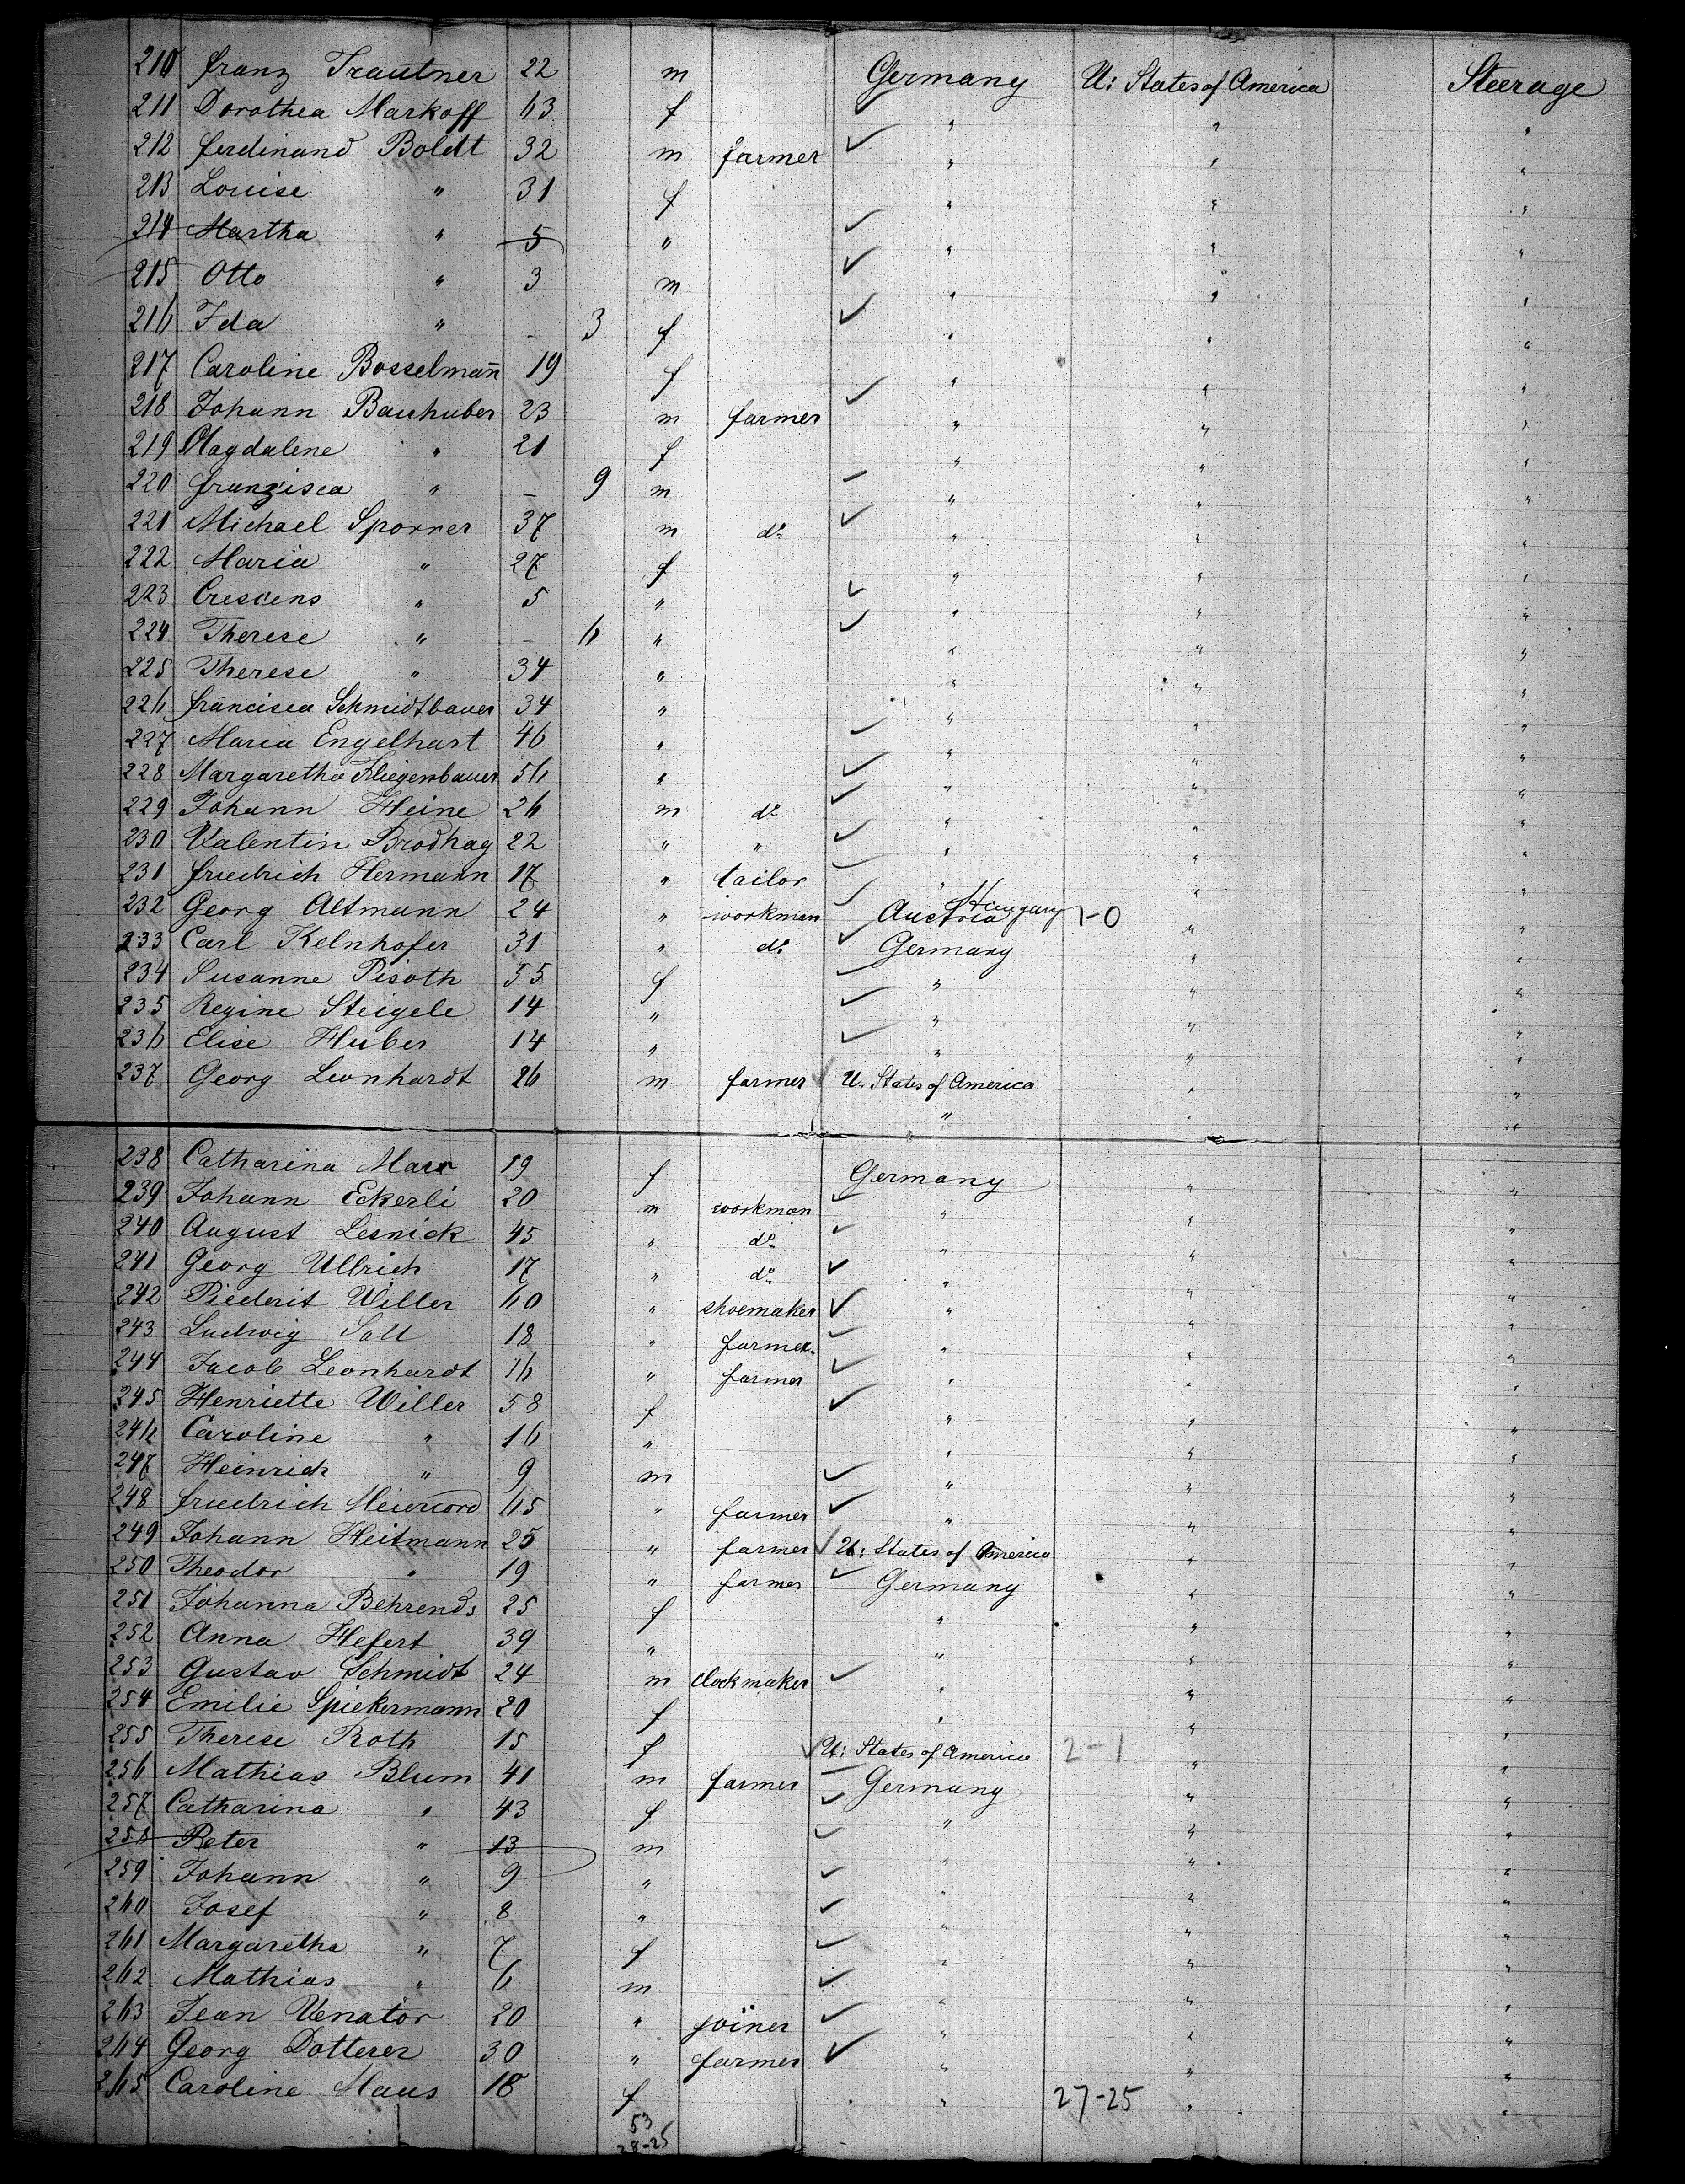 210 Franz Trautner 22 m Germany U: States of America Steerage
211 Dorothea Markoff 63 f " " "
212 Ferdinand Boldt 32 m farmer " " "
213 Louise " 31 f " " "
214 Martha " 5 " " " "
215 Otto " 3 m " " "
216 Ida " - 3 f " " "
217 Caroline Bosselman̄ 19 f " " "
218 Johann Bauhuber 23 m farmer " " "
219 Magdalene " 21 f " " "
220 Franzisca " - 9 m " " "
221 Michael Sporrer 37 m do " " "
222 Maria " 27 f " " "
223 Crescens " 5 " " " "
224 Therese " - 6 " " " "
225 Therese " 34 " " " "
226 Francisca Schmidtbauer 34 " " " "
227 Maria Engelhart 46 " " " "
228 Margaretha Fliegenbauer 56 " " " "
229 Johann Heine 26 m do " " "
230 Valentin Brodhag 22 " " " " "
231 Friedrich Hermann 17 " tailor " " "
232 Georg Altmann 24 " workman Austria Hungary 1-0 " "
233 Carl Kelnhofer 31 " do Germany " "
234 Susanne Pisoth 55 f " " "
235 Regine Steigele 14 " " " "
236 Elise Huber 14 " " " "
237 Georg Leonhardt 26 m farmer U. States of America " "
" " "
238 Catharina Marr 19 f Germany " "
239 Johann Eckerli 20 m workman " " "
240 August Lesnick 45 " do " " "
241 Georg Ullrich 17 " do " " "
242 Piederit Willer 60 " shoemaker " " "
243 Ludwig Sall 18 " farmer " " "
244 Jacob Leonhardt 16 " farmer " " "
245 Henriette Willer 58 f " " "
246 Caroline " 16 " " " "
247 Heinrich " 9 m " " "
248 Friedrich Meiercord 65 " farmer " " "
249 Johann Heitmann 25 " farmer U: States of America " "
250 Theodor " 19 " farmer Germany " "
251 Johanna Behrends 25 f " " "
252 Anna Hefert 39 " " " "
253 Gustav Schmidt 24 m clockmaker " " "
254 Emilie Spiekermann 20 f " " "
255 Therese Roth 15 f U: States of America 2-1 " "
256 Mathias Blum 41 m farmer Germany " "
257 Catharina " 43 f " " "
258 Peter " 13 m " " "
259 Johann " 9 " " " "
260 Josef " 8 " " " "
261 Margaretha " 7 f " " "
262 Mathias " 6 m " " "
263 Jean Venator 20 " joiner " " "
264 Georg Dotterer 30 " farmer " " "
265 Caroline Maus 18 f " 27-25 " "
53
28-25